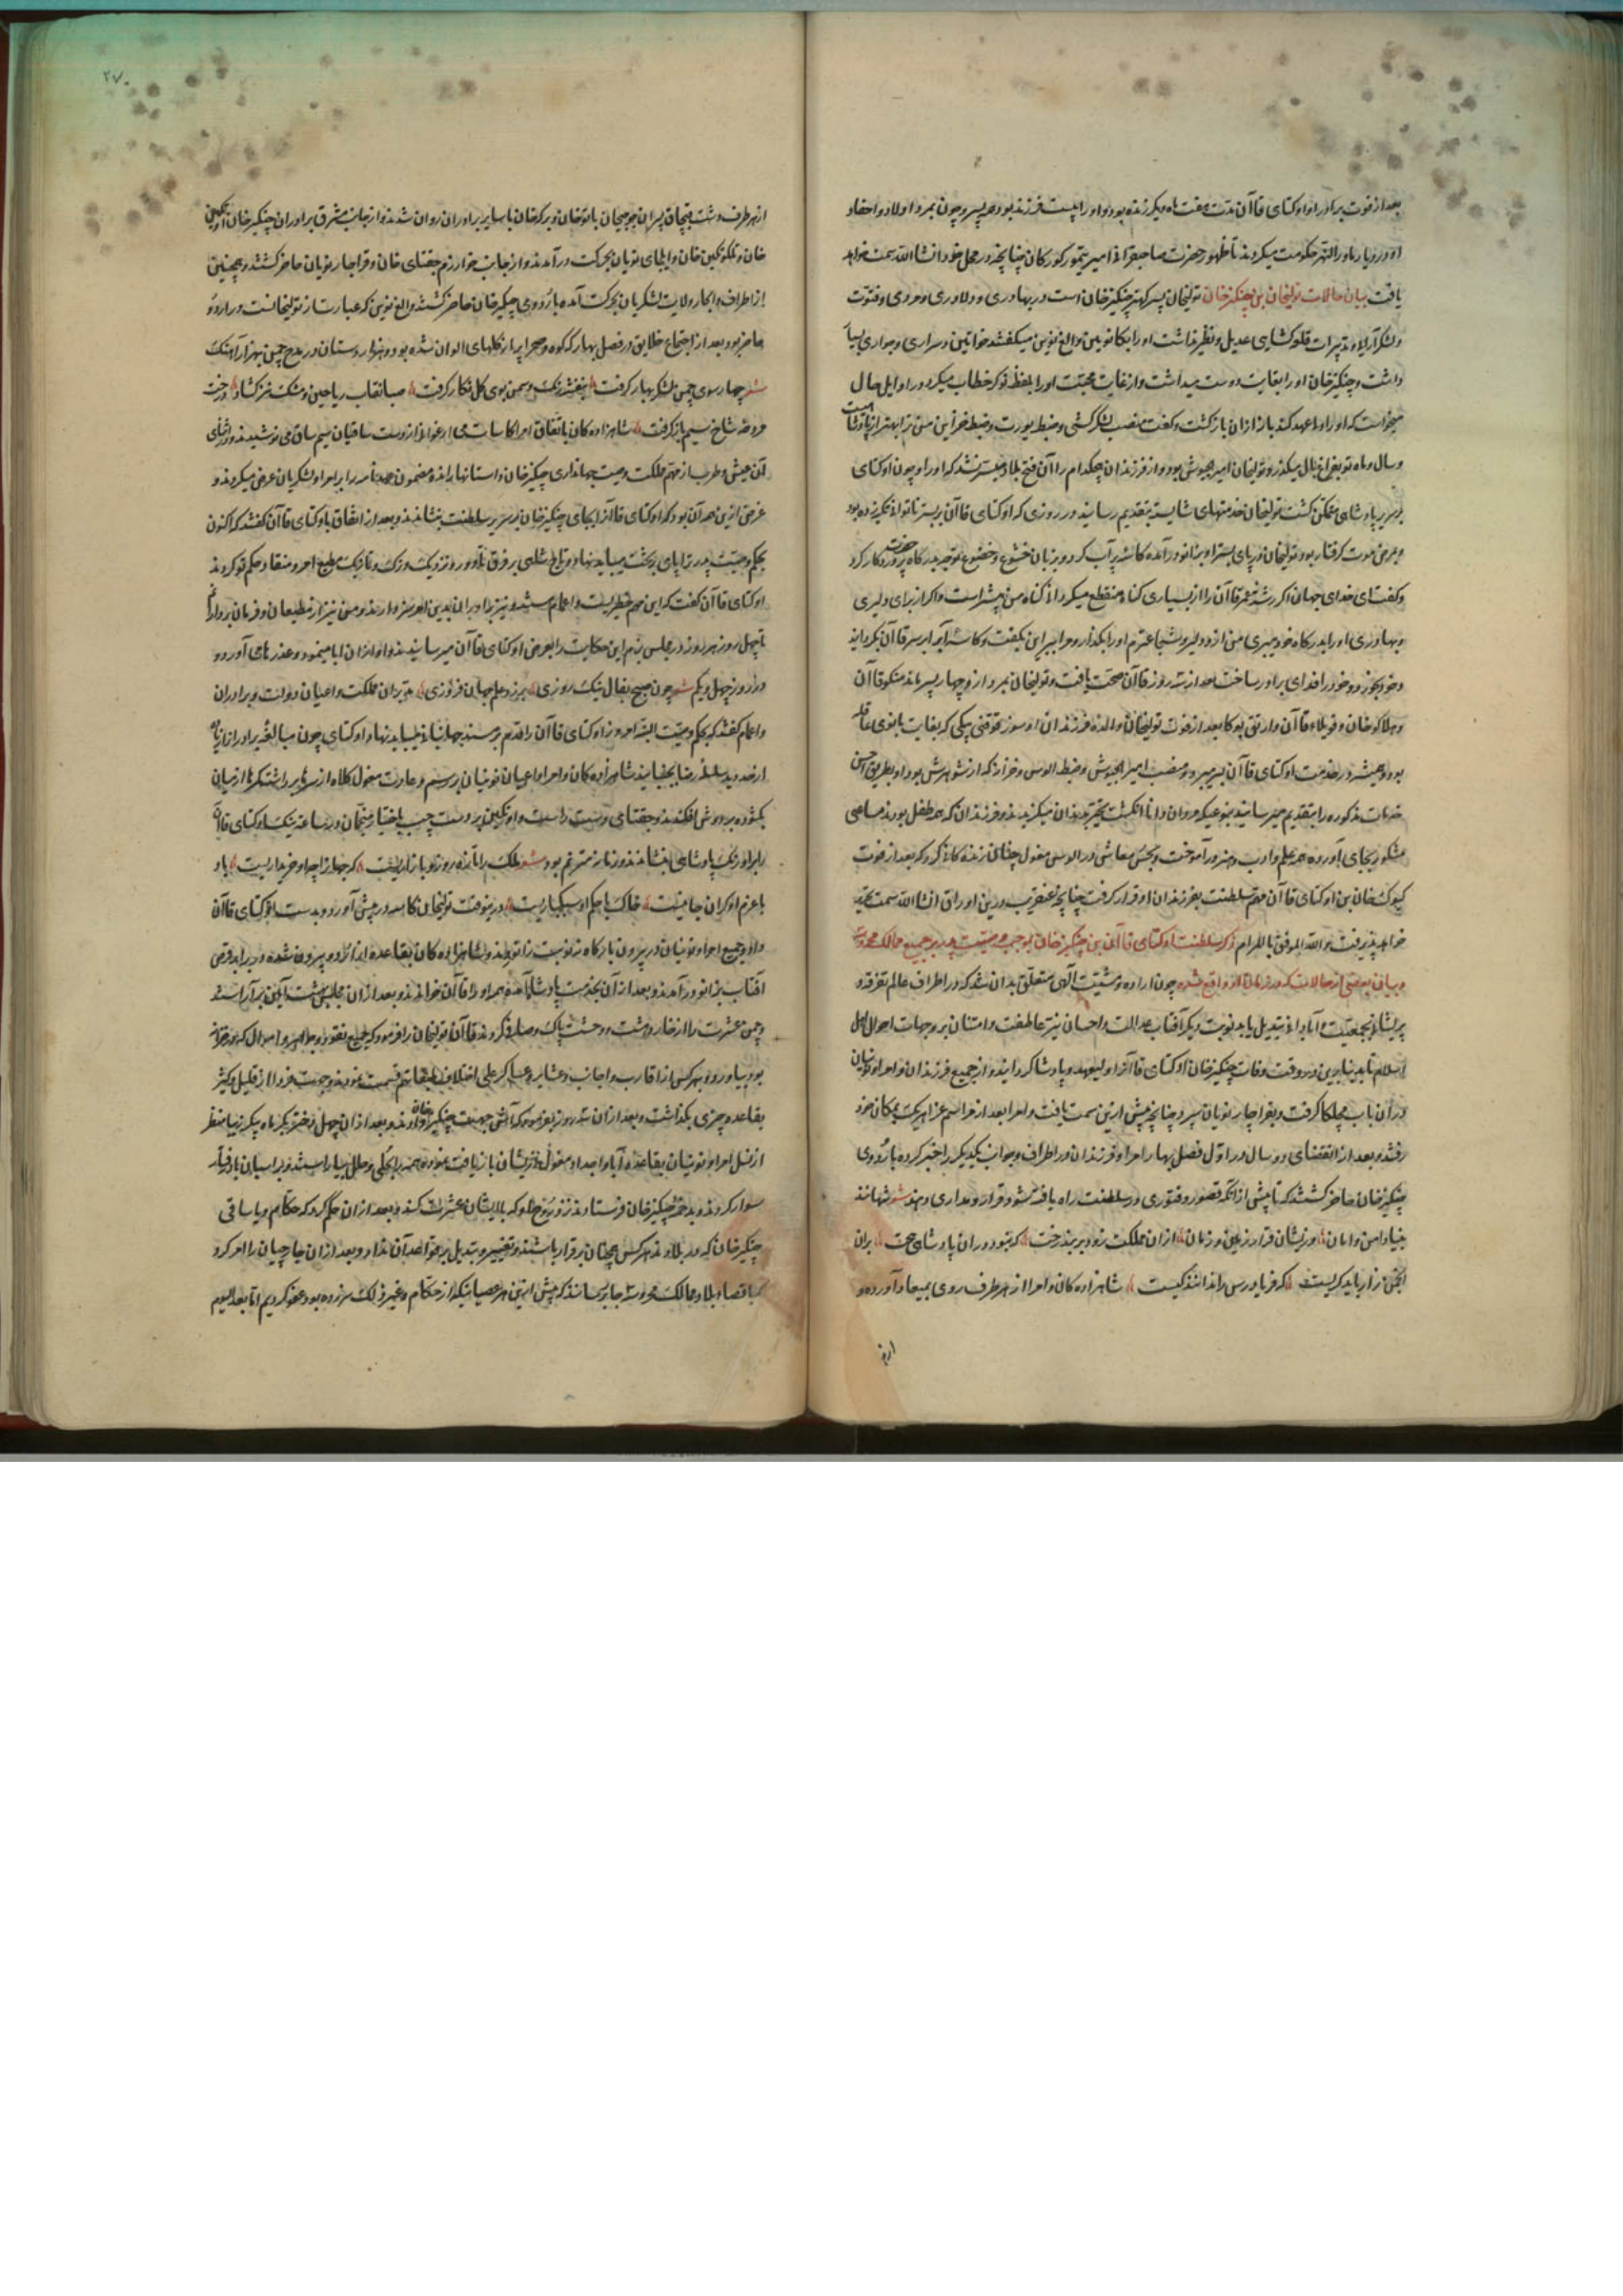 بعد از فوت برادر او اوکتای قاآن مدت هفت ماه دیگر زنده بود و او را بیست فرزند بود هر پسر و چون بمرد اولاد و احفاد
او در دیار ماوراالنهر حکومت میکردند تا ظهور حضرت صاحبقرانی امیر تیمور کورکان چنانچه در محل خود انشا الله سمت خواهد
یافت بیان حالات تولیخان بن چنکیز خان تولیخان پسر کهتر چنکیز خان است در بهادری و دلاوری و مردی و فتوت
و لشکر آرایی و تدبیرات قلعه کشایی عدیل و نظیر نداشت او را یکانویین و الغ نویین میکفتند خواتین و سراری و جواری بسیار
داشت و چنکیز خان او را بغایت دوست میداشت و از غایت محبت او را بلفظ نوکر خطاب میکرد و در اوایل حال
میخواست که او را ولیعهد کند باز از ان بازکشت و کفت منصب لشکر کشی و ضبط یورت و ضبط خزاین منی ترا بهتر از پادشاهیست
و سال و ماه تو بفراغ بال میکذرد و تولیخان امیر الجیوش بود و از فرزندان هیچکدام را آن فتح بلاد میسر نشد که او را و چون اوکتای
بر سریر پادشاهی متمکن کشت تولیخان خدمتهای شایسته بتقدیم رسانید و در روزی که اوکتای قاآن بر بستر ناتوانی تکیه زده بود
و بمرض موت کرفتار بود تولیخان در پای بستر او بزانو در آمده کاسه پر آب کرد و بزبان خشوع و خضوع توجه بدرکاه حضرت پروردکار کرد
و کفت ای خدای جهان اکر رشته عمر قاآن را از بسیاری کناه منقطع میکردانی کناه من بیشتر است و اکر از برای دلیری
و بهادری او را بدرکاه خود میبری من از و دلیر و شجاعترم او را بکذار و مرا ببر این بکفت و کاسه آب را بر سر قاآن بکردانید
و خود بخورد و خود را فدای برادر ساخت بعد از سه روز قاآن صحت یافت و تولیخان بمرد از و چهار پسر ماند منکو قاآن
و هلاکو خان و قوبیلاء قاآن و اریق بوکا بعد از فوت تولیخان والده فرزندان او سورقوقتی بیکی که بغایت بانوی عاقله
بود و همیشه در خدمت اوکتای قاآن بسر میبرد و منصب امیر الجیوش و ضبط الوس و خزانه که از شوهرش بود او بطریق احسن
خدمات مذکوره را بتقدیم میرسانید بنوعی که مردان دانا انکشت تحیر بدندان میکزیدند و فرزندان که همه طفل بودند مساعی
مشکور بجای آورده همه علم و ادب و هنر در آموخت و بحسن معاش در الوس مغول چنان زندکانی کرد که بعد از فوت
کیوک خان بن اوکتای قاآن مهم سلطنت بفرزندان او قرار کرفت چنانچه عنقریب درین اوراق انشا الله سمت تحریر
خواهد پذیرفت و الله الموفق بالمرام ذکر سلطنت اوکتای قاآن بن چنکیز خان بموجب وصیت پدر بر جمیع ممالک محروسه
و بیان بعضی از حالات که در زمان او واقع شده چون اراده و مشیت الهی متعلق بدان شد که در اطراف عالم تفرقه و
پریشانی بجمعیت و آبادانی تبدیل یابد نوبت دیکر آفتاب عدالت و احسان نیز عاطفت و امتنان بر وجهات احوال اهل
اسلام تابیدن یابد در وقت وفات چنکیز خان اوکتای قاآن را ولیعهد و پادشاه کردانید و از جمیع فرزندان و امرا و نوینان
در ان باب مچلکا کرفت و بقراچار نویان سپرد چنانچه پیش ازین سمت یافت و امرا بعد از مراسم عزا هر یک بمکان خود
رفتند و بعد از انقضای دو سال در اول فصل بهار امرا و فرزندان در اطراف و جوانب یکدیکر را خبر کرده باردوی
چنکیز خان حاضر کشتند که تا پیش از انکه قصور و فتوری در سلطنت راه یافته شود قرار و مداری دهند شعر شهانند
بنیاد امن و امان ؛ وریشان قرار زمین و زمان ؛ از ان مملکت زود بر بند رخت ؛ که نبود دوران پادشاهی تخت ؛ بران
انجمن زار باید کریست ؛ که فریاد رس را ندانند کیست ؛ شاهزادکان و امرا از هر طرف روی بمیعاد آوردند و
از هر
۲۷۰
از هر طرف دشت قبچاق پسران جوجیخان باتو خان و برکه خان با سایر برادران روان شدند و از جانب مشرق برادران چنکیز خان اوتکین
خان و بلکوتکین خان و ایلچای نویان بحرکت در آمدند و از جانب خوارزم جغتای خان و قراچار نویان حاضر کشتند و همچنین
از اطراف و اکناف ولایت لشکریان بحرکت آمده باردوی چنکیز خان حاضر کشتند و الغ نویین که عبارت از تولیخانست در اردو
حاضر بود بعد از اجتماع خلایق در فصل بهار که کوه و صحرا پر از کلهای الوان شده بود و هزار دستان در مدح چمن بهزار آهنک
شعر چهار سوی چمن لشکر بهار کرفت ؛ بنفشه رنک و سمن بوی کل نکار کرفت ؛ صبا نقاب ریاحین و مشک تر کشاد ؛ درخت
عروضه شاخ سیم بار کرفت ؛ شاهزادکان باتفاق امرا کاسات می ارغوانی از دست ساقیان سیم ساق می نوشیدند و در اثنای
آن عیش و طرب از مهم مملکت و صیت جهانداری چنکیز خان داستانها رانده مضمون عهدنامه را بر امرا و لشکریان عرض میکردند و
غرض ازین همه آن بود که اوکتای قاآن را بجای چنکیز خان بر سریر سلطنت بنشانند و بعد از اتفاق با اوکتای قاآن کفتند که اکنون
بحکم وصیت پدر ترا پای بر تخت میباید نهاد و تاج شاهی بر فرق تا دور و نزدیک و ترک و تاجیک مطیع امر و منقاد حکم تو کردند
اوکتای قاآن کفت که این مهم خطیریست و اعمام هستند و نیز برادران بدین امر سزاوارند و من نیز از مطیعان و فرمان بردارانم
تا چهل روز هر روز در مجلس بزم این حکایت را بعرض اوکتای قاآن میرسانیدند و او از ان ابا مینمود و عذرها می آورد و
در روز چهل و یکم شعر چون صبح بفال نیک روزی ؛ بر زد علم جهان فروزی ؛ مدبران مملکت و اعیان دولت و برادران
و اعمام کفتند که بحکم وصیت البته امروز اوکتای قاآن را قدم بر مسند جهانبانی میباید نهاد و اوکتای چون مبالغه برادران زیاده
از حد دید سلسله رضا بجنبانید شاهزادکان و امرا و اعیان نوینان بر رسم و عادت مغول کلاه از سرها برداشته کمرها از میان
بکشوده بر دوش افکندند و جغتای دست راست و اوتکین بر دست چپ باختیار منجمان در ساعت نیک اوکتای قاآن
را بر اورنک پادشاهی بنشاندند و زمانه مترنم بود شعر ملک را تازه روز بازاریست ؛ که جهان را چو او خریداریست ؛ باد
با عزم او کران جانیست ؛ خاک با حکم او سبکباریست ؛ در ینوقت تولیخان کاسه در پیش آورد و بدست اوکتای قاآن
داد و جمیع امرا و نوینان در بیرون بارکاه نه نوبت زانو زدند و شاهزادکان بقاعده از اردو بیرون شده و در برابر قرص
آفتاب بزانو در آمدند و بعد از ان بخدمت پادشاه آمده همه او را قاآن خواندند و بعد از ان مجلس بهشت آیین بر آراستند
و چمن عشرت را از خار دهشت و وحشت پاک و صافی کردند قاآن تولیخان را فرمود که جمیع نقود و جواهر و اموال که در خزانه
بود بیاورد و بهر کس از اقارب و اجانب و عشایر و عساکر علی اختلاف طبقاتهم قسمت نمودند و جهت فردا از قلیل و کثیر
بقاعده چیزی نکذاشت و بعد از ان سه روز بفرمود که آش جهت چنکیز خان دادند و بعد از ان چهل دختر بکر ماه پیکر زیبا منظر
از نسل امرا و نوینان بقاعده آبا و اجداد مغول تزیشان باز یافت نموده همه را بحلی و حلل بیاراستند و بر اسبان بادرفتار
سوار کردند و بدخمه چنکیز خان فرستادند تا در برزخ ملوکه بالیشان عشرت کند و بعد از ان حکم کرد که حکام و یاساقی
چنکیز خان که در بلادند هر کس همچنان بر قرار باشند و تغییر و تبدیل بر قواعد آن نداد و بعد از ان جارچیان را امر کرد
که باقصای بلاد و ممالک محروسه جا رسانند که پیش ازین هر عصیانیکه از حکام و غیر ذلک سر زده بود عفو کردیم اما بعد الیوم